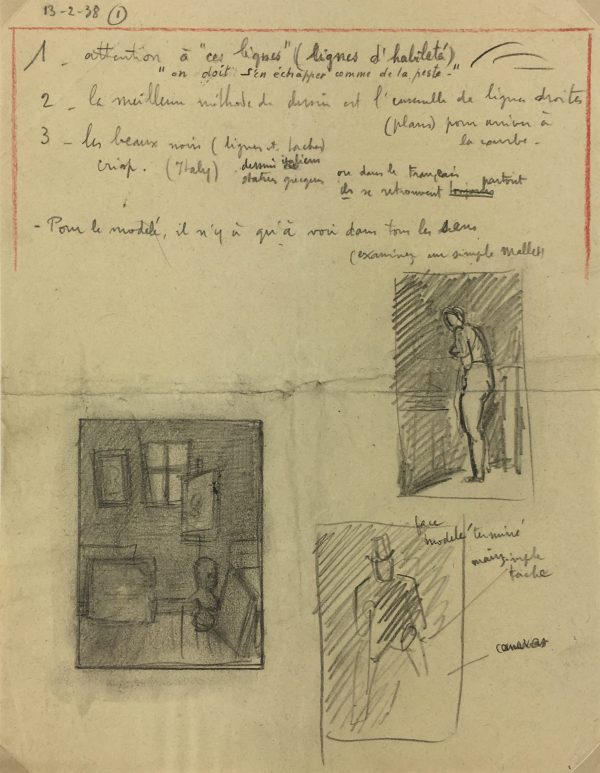 13-2-38 ①
1 - attention à "ces lignes" (lignes d'habileté)
"on doit s'en échapper comme de la peste-"
2 - la meilleure méthode de dessin est l'ensemble de lignes droites
(plans) pour arriver à
la courbe-
3 - les beaux noirs (lignes et taches)
crisp. (Italy) dessins italiens
statues grecques
ou dans le français
ils se retrouvent partout
- Pour le modelé, il n'y à qu'à voir dans tous les sens
(examinez un simple Maillol)
face
modelé terminé
main simple
tache
canevas